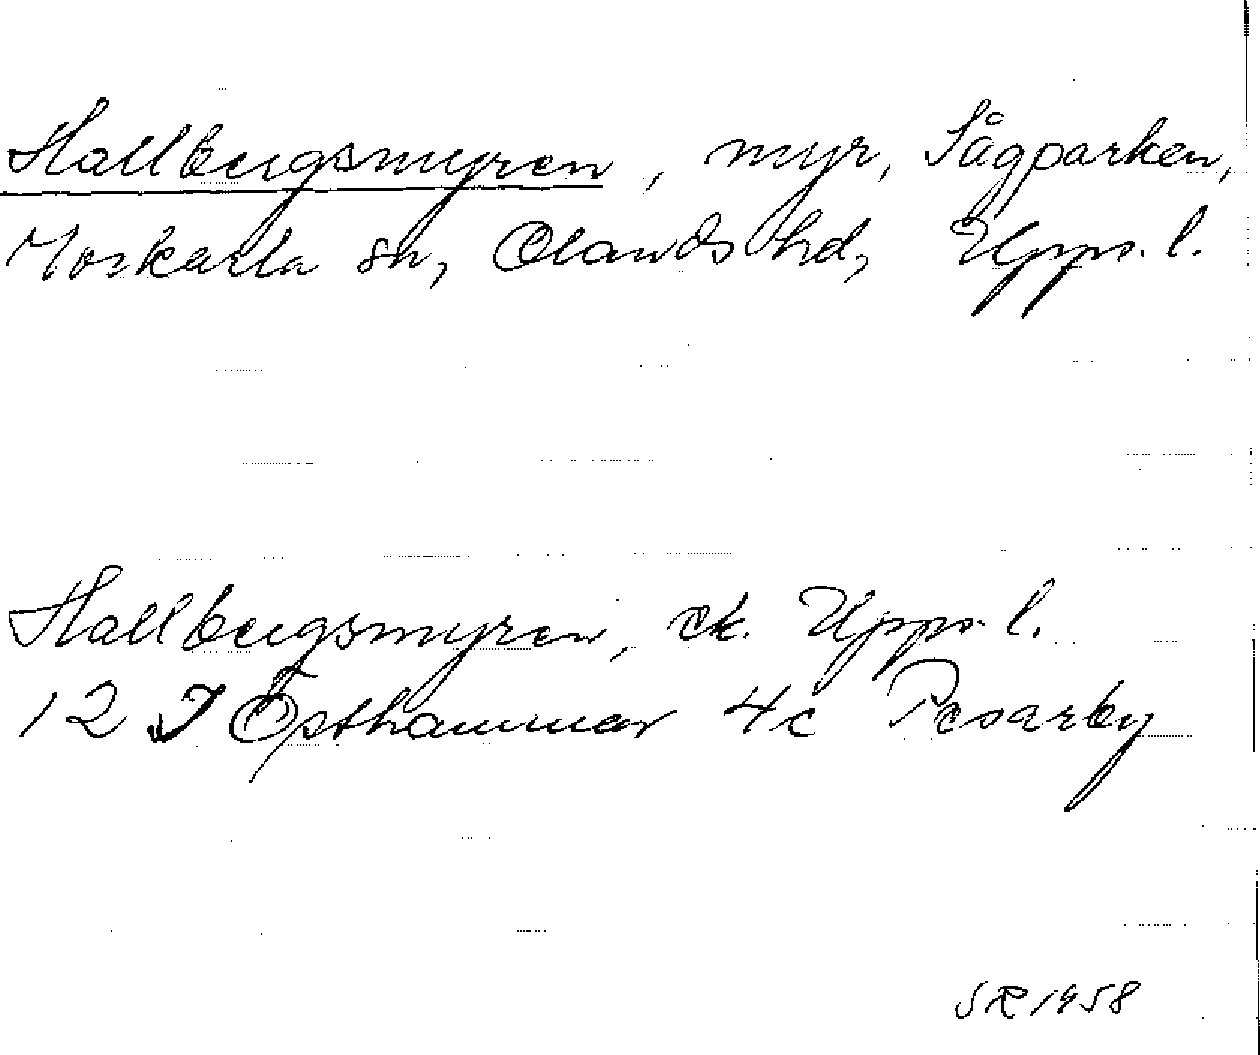 Hallbergsmyren, myr, Sågparken,
Morkarla sn, Olands hd, Uppl.
Hallbergsmyren, ek. Uppl.
12 I Östhammar 4c Pesarby
SR 1958